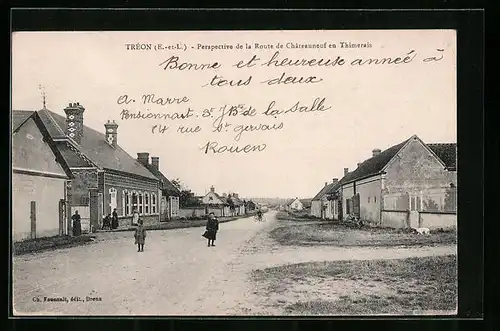 TRÉON (E.-et-L.) - Perspective de la Route de Châteauneuf en Thimerais
Bonne et heureuse année à
tous deux
A. Marre
Pensionnat St J Bte de la Salle
14 rue St gervais
Rouen
Ch. Foucault, édit., Dreux